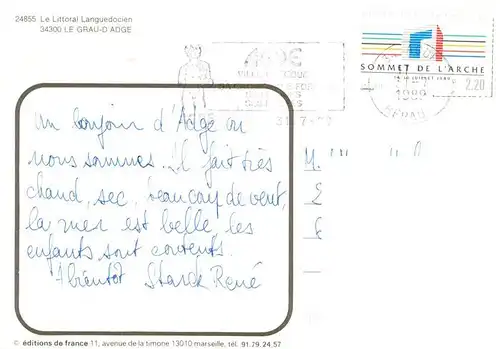 24855 Le Littoral Languedocien
34300 LE GRAU-D'ADGE
SOMMET DE L'ARCHE
14 16 JUILLET 1989
2,20
1989
HERAULT
31.7.
un bonjour d'Adge où
nous sommes. Il fait très
chaud, sec, beaucoup de vent,
la mer est belle, les
enfants sont contents.
Abientôt Starck René
© éditions de france 11, avenue de la timone 13010 marseille, tél. 91.79.24.57